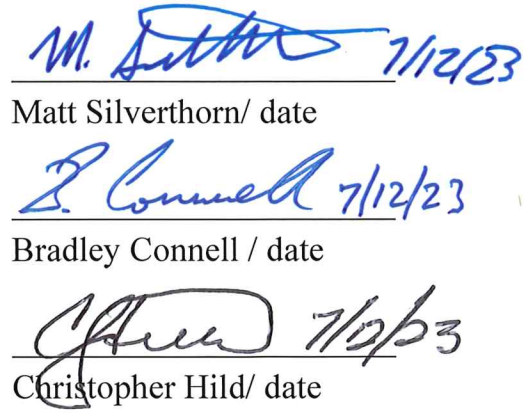 M. 7/12/23
Matt Silverthorn/ date
B. Connell 7/12/23
Bradley Connell / date
7/12/23
Christopher Hild/ date